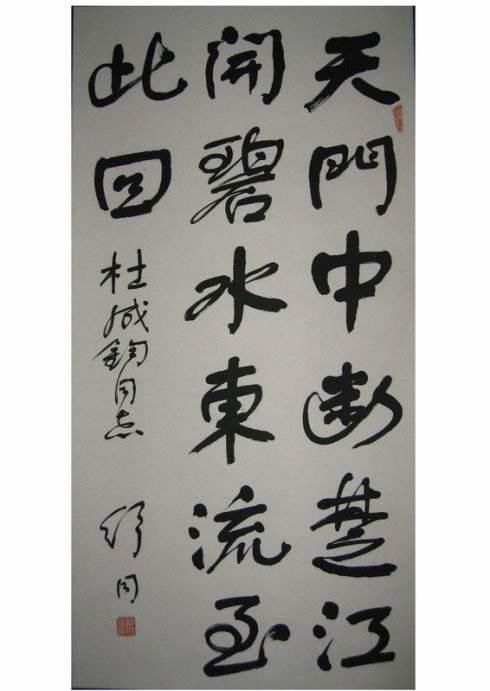 天門中断楚江
開碧水東流至
此回
杜成鈞同志
舒同